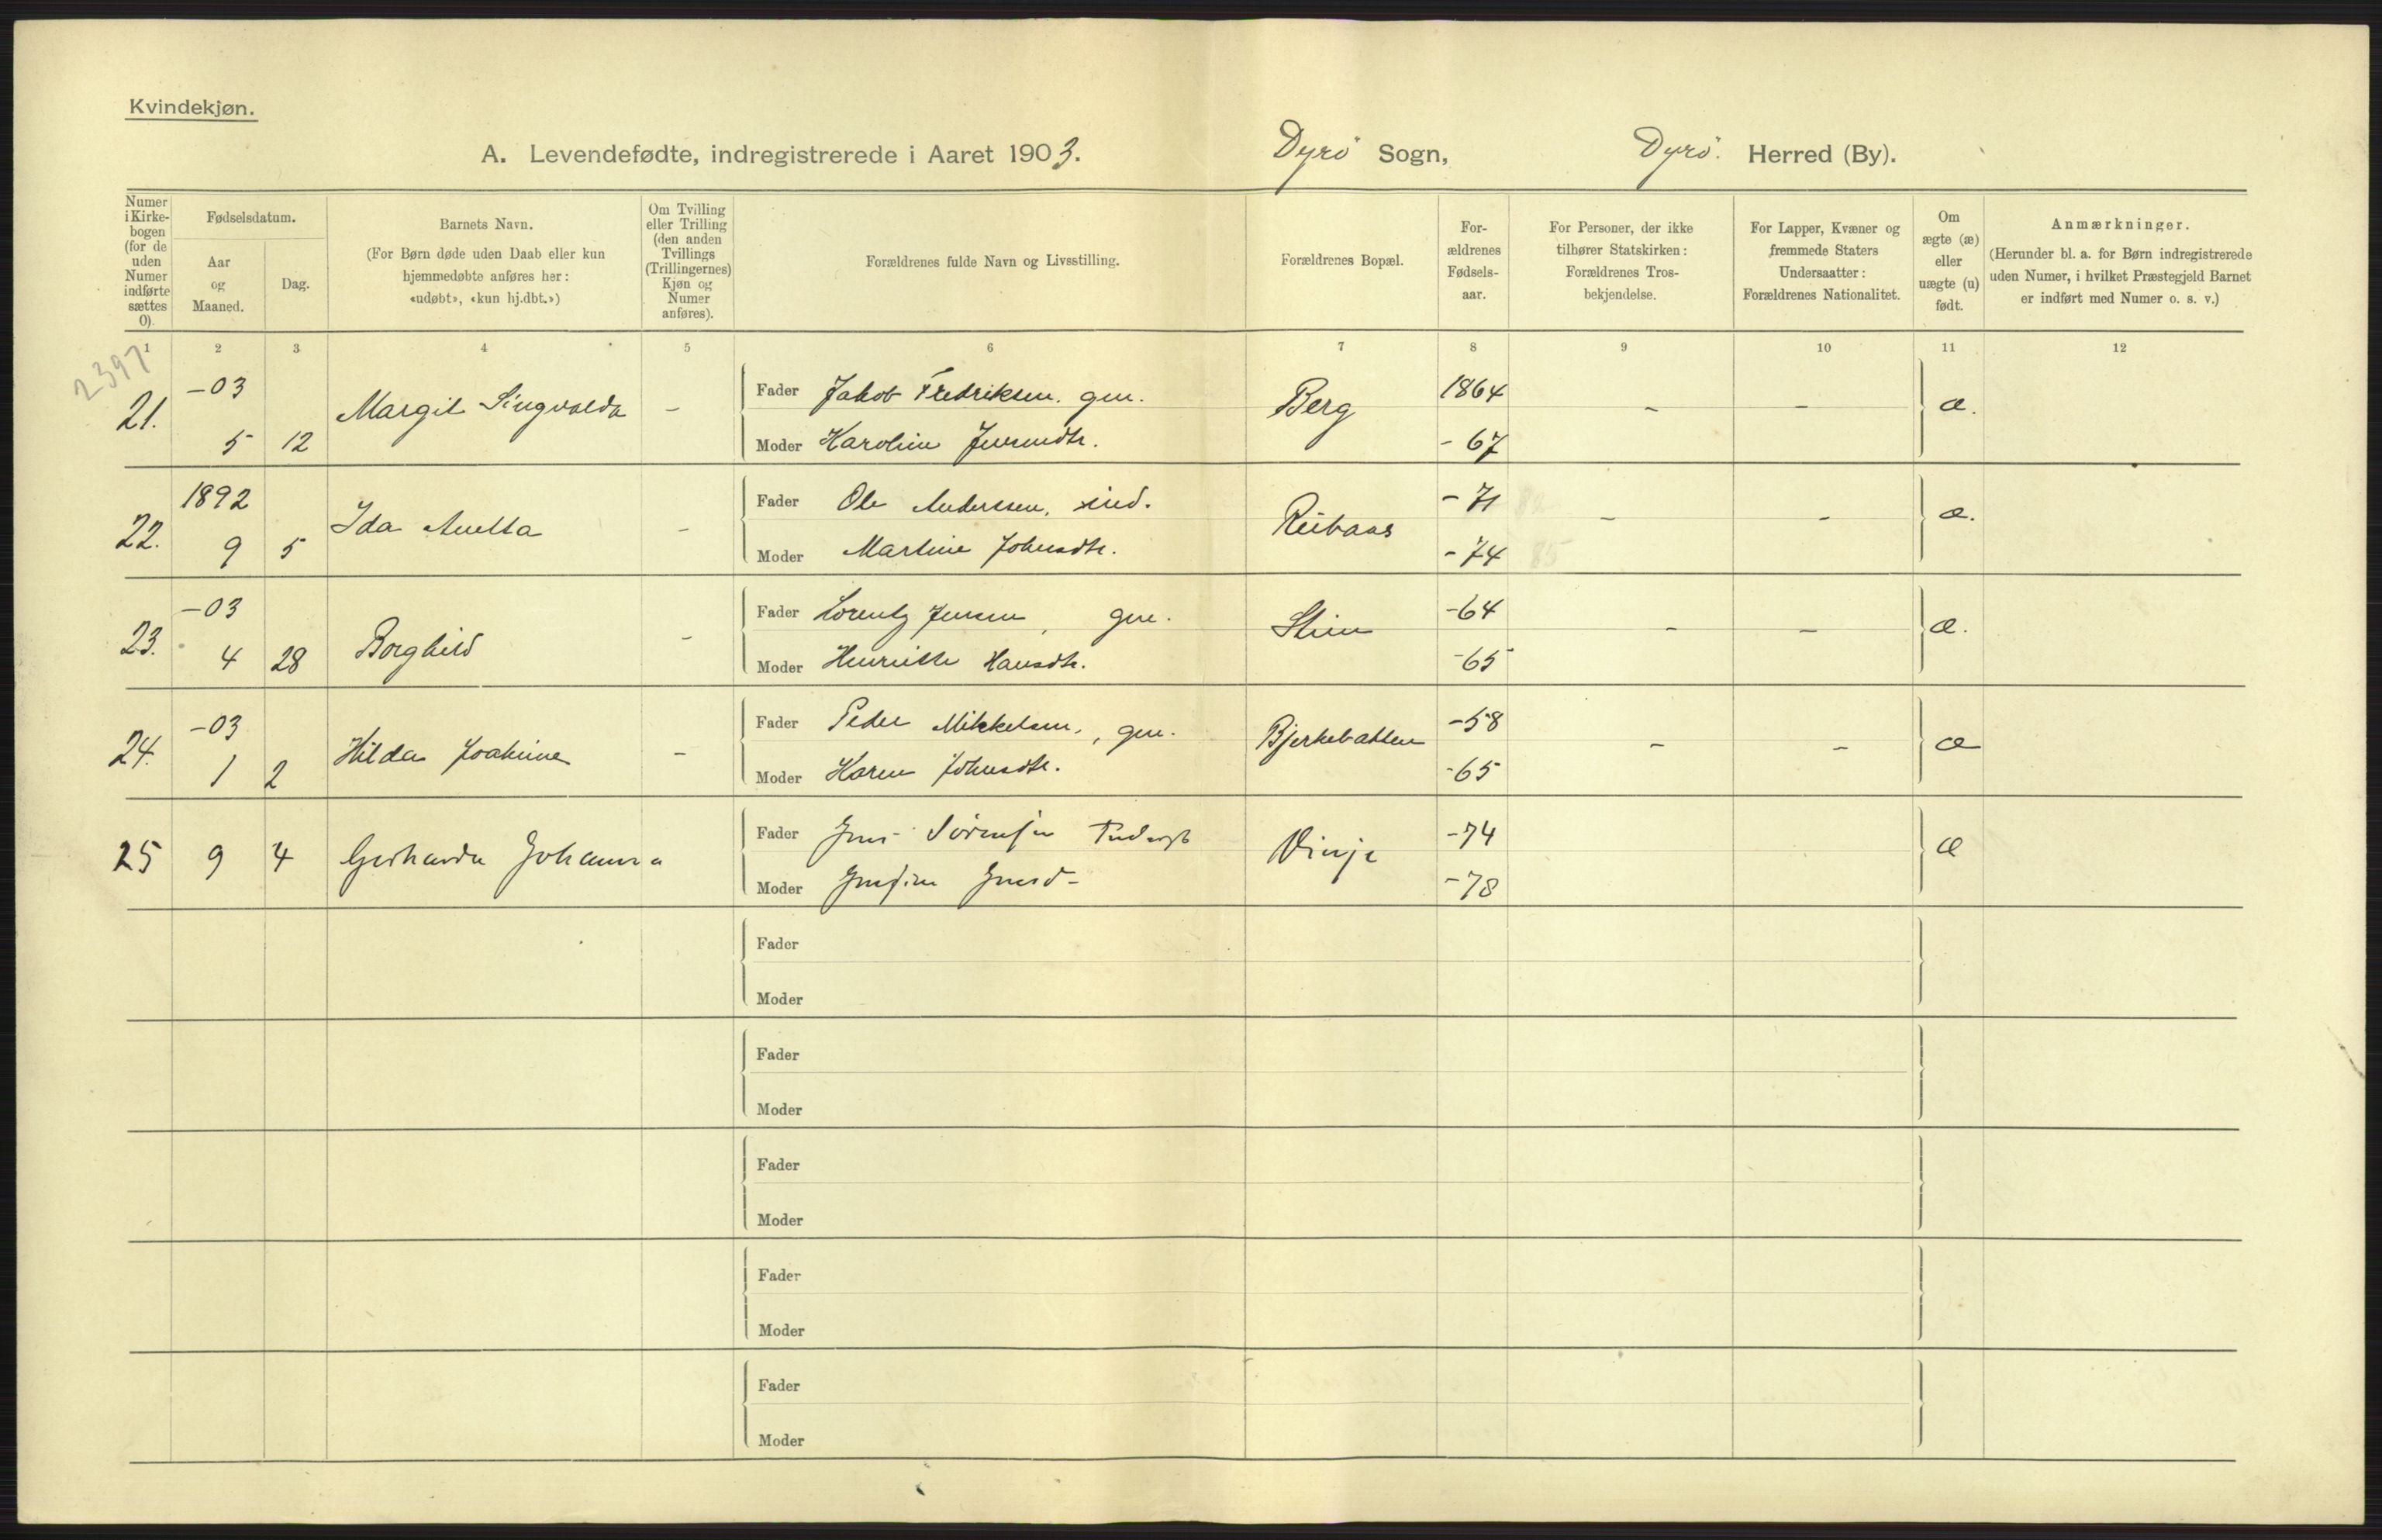 Kvindekjøn.
A. Levendefødte, indregistrerede i Aaret 1903. Dyrö Sogn, Dyrö. Herred (By).
Numer i Kirkebogen (for de uden Numer indførte sættes 0).
Fødselsdatum.
Aar og Maaned.
Dag.
Barnets Navn.
(For Børn døde uden Daab eller kun hjemmedøbte anføres her: «udøbt», «kun hj.dbt.»)
Om Tvilling eller Trilling (den anden Tvillings (Trillingernes) Kjøn og Numer anføres).
Forældrenes fulde Navn og Livsstilling.
Forældrenes Bopæl.
Forældrenes Fødselsaar.
For Personer, der ikke tilhører Statskirken: Forældrenes Trosbekjendelse.
For Lapper, Kvæner og fremmede Staters Undersaatter: Forældrenes Nationalitet.
Om ægte (æ) eller uægte (u) født.
Anmærkninger.
(Herunder bl. a. for Børn indregistrerede uden Numer, i hvilket Præstegjeld Barnet er indført med Numer o. s. v.)
1 2 3 4 5 6 7 8 9 10 11 12
2397
21. -03 5 12 Margit Singvalda - Fader Jakob Fredriksen. gm. Berg 1864 - - æ.
Moder Karoline Jensdtr. - 67
22. 1892 9 5 Ida Anetta - Fader Ole Anderssen, ind. - 71 - - æ.
Moder Martine Johnsdtr. - 74 85
23. -03 4 28 Borghild - Fader Lorentz Jensen, gm. -64 - - æ.
Moder Henriette Hansdtr. -65
24. -03 1 2 Hilda Joakime - Fader Peder Mikkelsen, gm. Bjerkebakken -58 - - æ
Moder Karen Johnsdtr. -65
25 9 4 Gerharda Johanna Fader Jens Sörensen Vinje -74 æ
Moder Jensine Jensd- -78
Fader
Moder
Fader
Moder
Fader
Moder
Fader
Moder
Fader
Moder